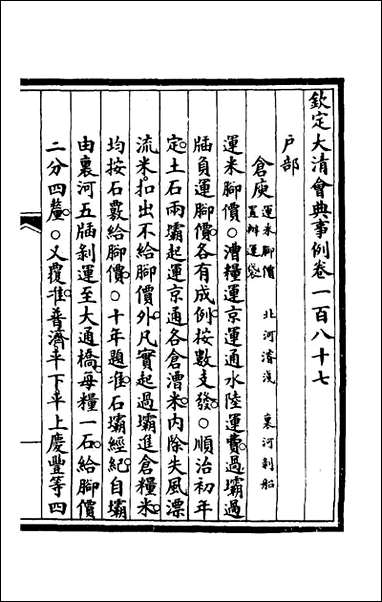 欽定大清會典事例卷一百八十七
戶部
倉庾 運米腳價 北河濬淺 裏河剝船 置辦運袋
運米腳價○漕糧運京運通水陸運費過壩過
牐負運腳價各有成例按數支發○順治初年
定土石兩壩起運京通各倉漕米內除失風漂
流米扣出不給腳價外凡實起過壩進倉糧米
均按石數給腳價○十年題准石壩經紀自壩
由裏河五牐剝運至大通橋每糧一石給腳價
二分四釐○又覆准普濟平下平上慶豐等四